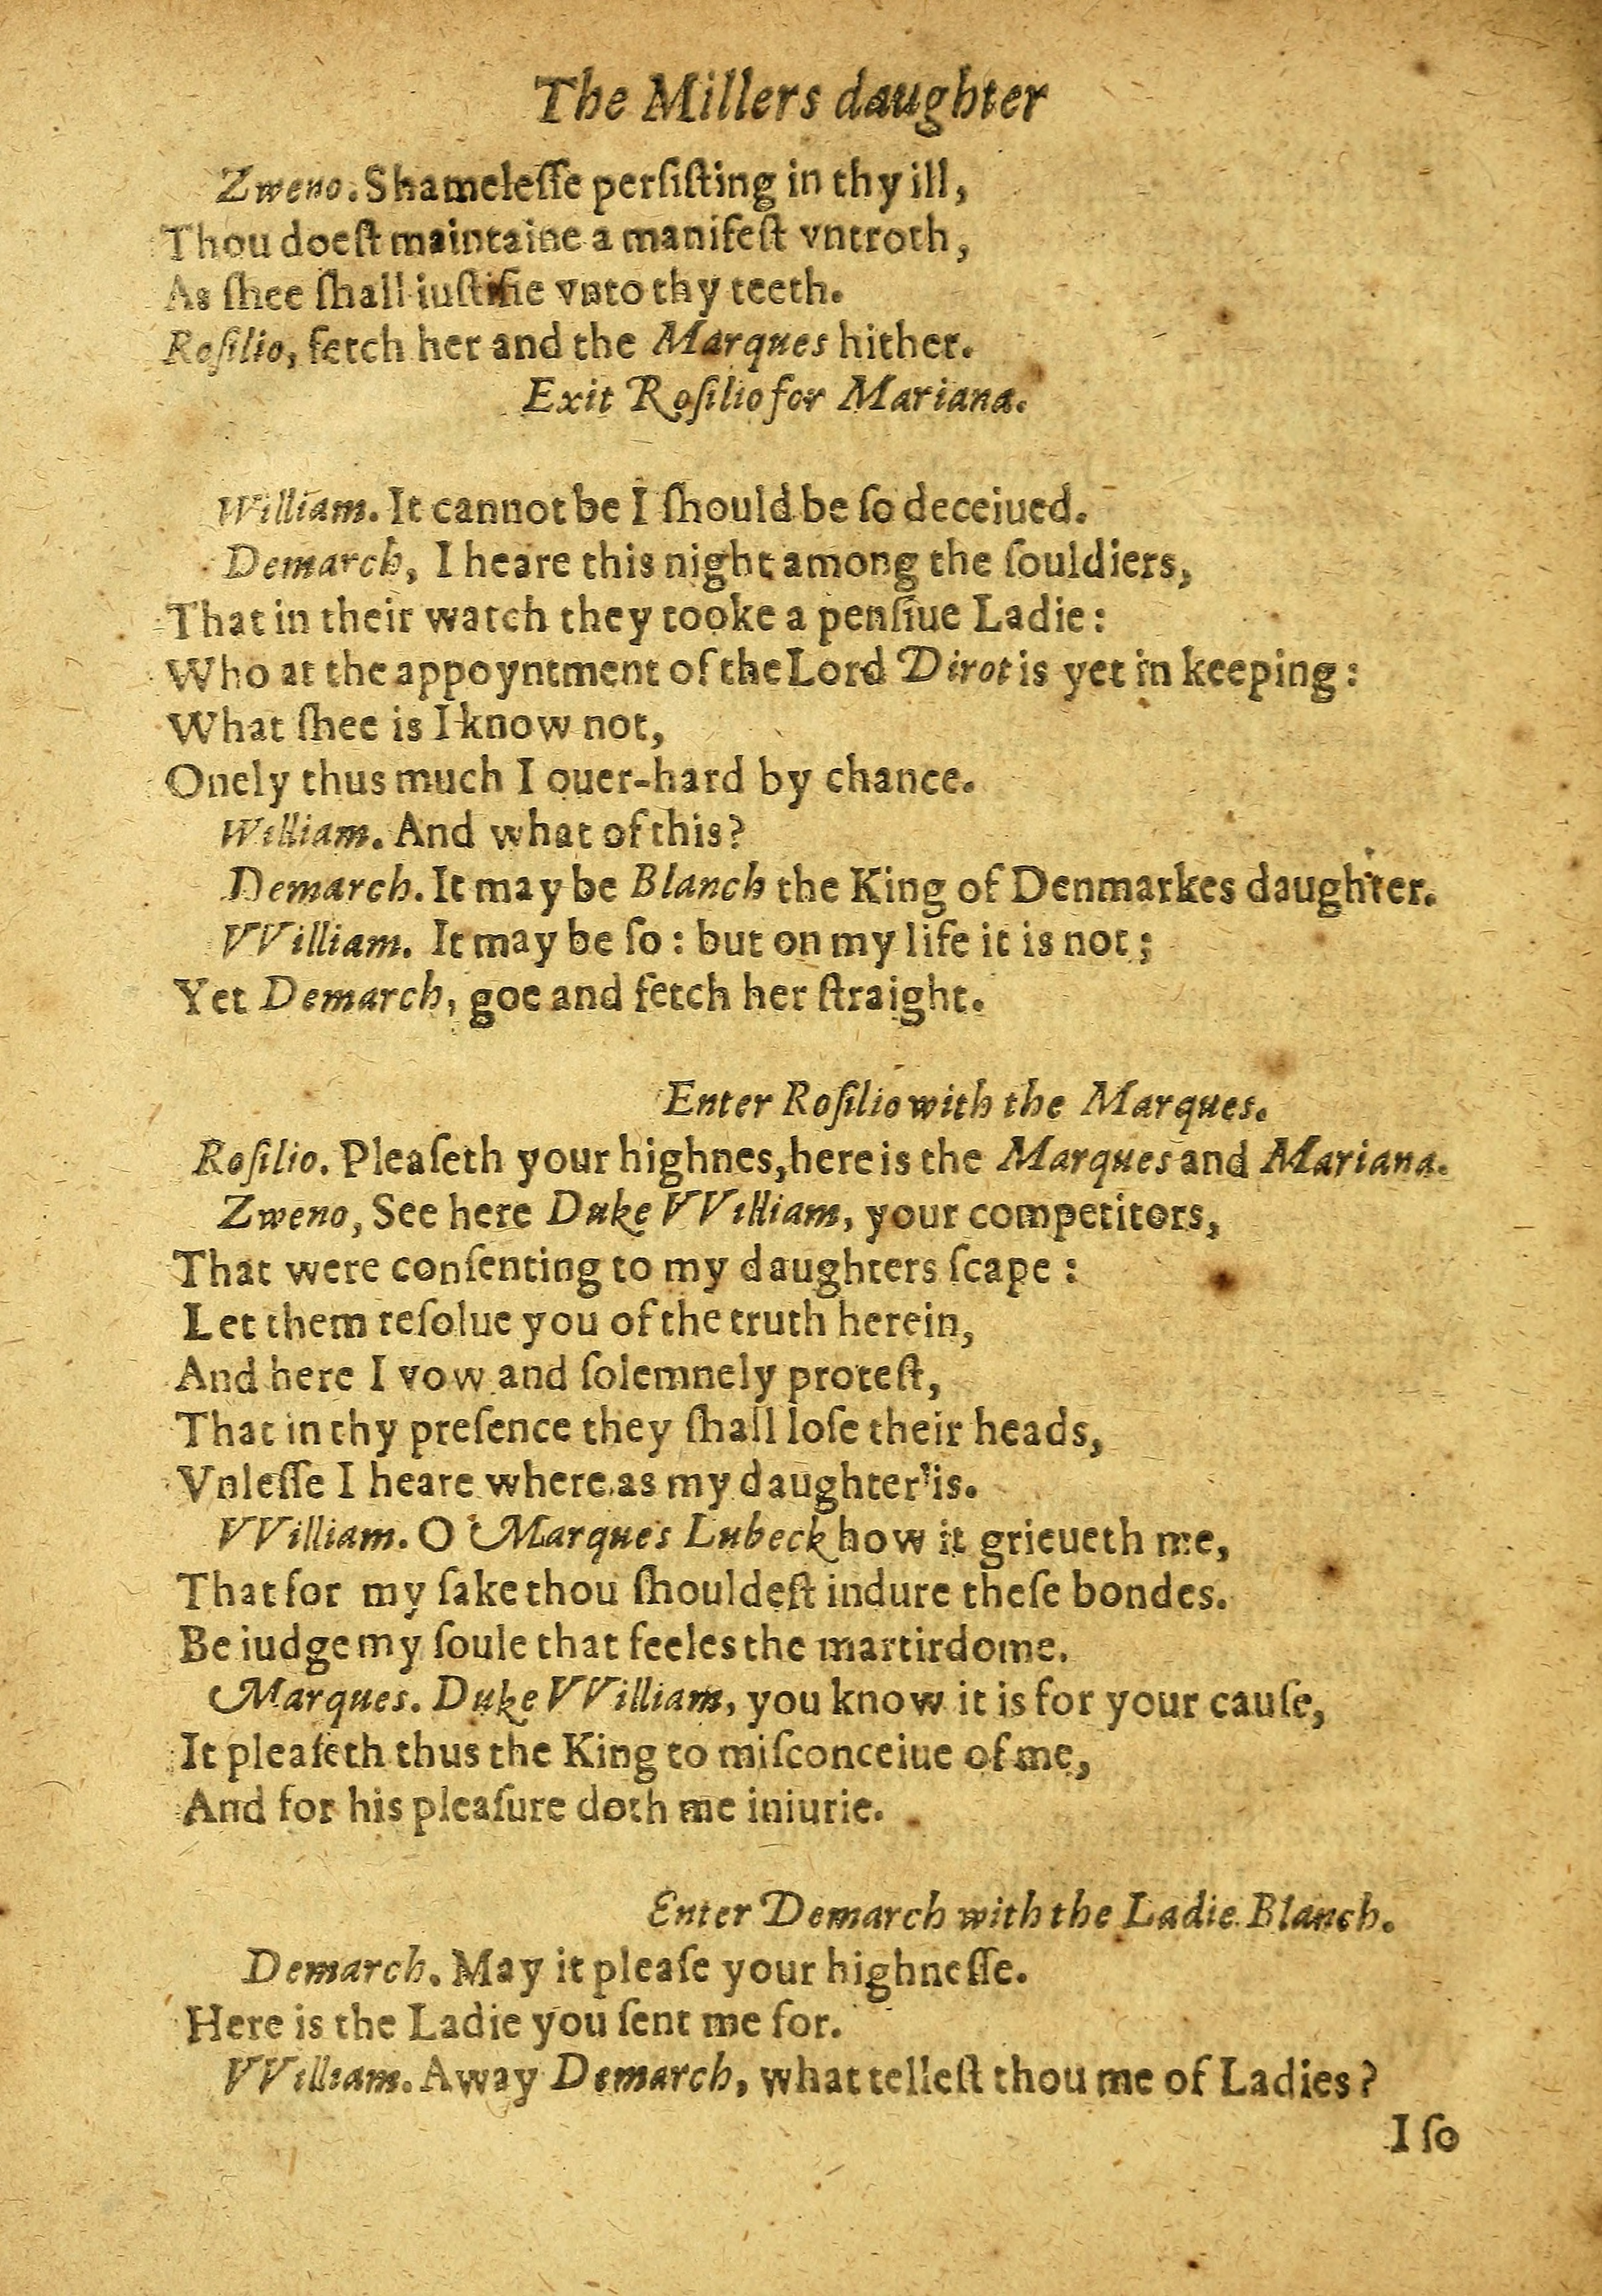 The Millers daughter
Zweno. Shameleſſe perſiſting in thy ill,
Thou doeſt maintaine a manifeſt vntroth,
As ſhee ſhall iuſtifie vnto thy teeth.
Roſilio, fetch her and the Marques hither.
Exit Roſilio for Mariana.
William. It cannot be I ſhould be ſo deceiued.
Demarch, I heare this night among the ſouldiers,
That in their watch they tooke a penſiue Ladie:
Who at the appoyntment of the Lord Dirot is yet in keeping:
What ſhee is I know not,
Onely thus much I ouer-hard by chance.
William. And what of this?
Demarch. It may be Blanch the King of Denmarkes daughter.
VVilliam. It may be ſo: but on my life it is not;
Yet Demarch, goe and fetch her ſtraight.
Enter Roſilio with the Marques.
Roſilio. Pleaſeth your highnes, here is the Marques and Mariana.
Zweno, See here Duke VVilliam, your competitors,
That were conſenting to my daughters ſcape:
Let them reſolue you of the truth herein,
And here I vow and ſolemnely proteſt,
That in thy preſence they ſhall loſe their heads,
Vnleſſe I heare where as my daughter is.
VVilliam. O Marques Lubeck how it grieueth me,
That for my ſake thou ſhouldeſt indure theſe bondes.
Be iudge my ſoule that feeles the martirdome.
Marques. Duke VVilliam, you know it is for your cauſe,
It pleaſeth thus the King to miſconceiue of me,
And for his pleaſure doth me iniurie.
Enter Demarch with the Ladie Blanch.
Demarch. May it pleaſe your highneſſe.
Here is the Ladie you ſent me for.
VVilliam. Away Demarch, what telleſt thou me of Ladies?
I ſo